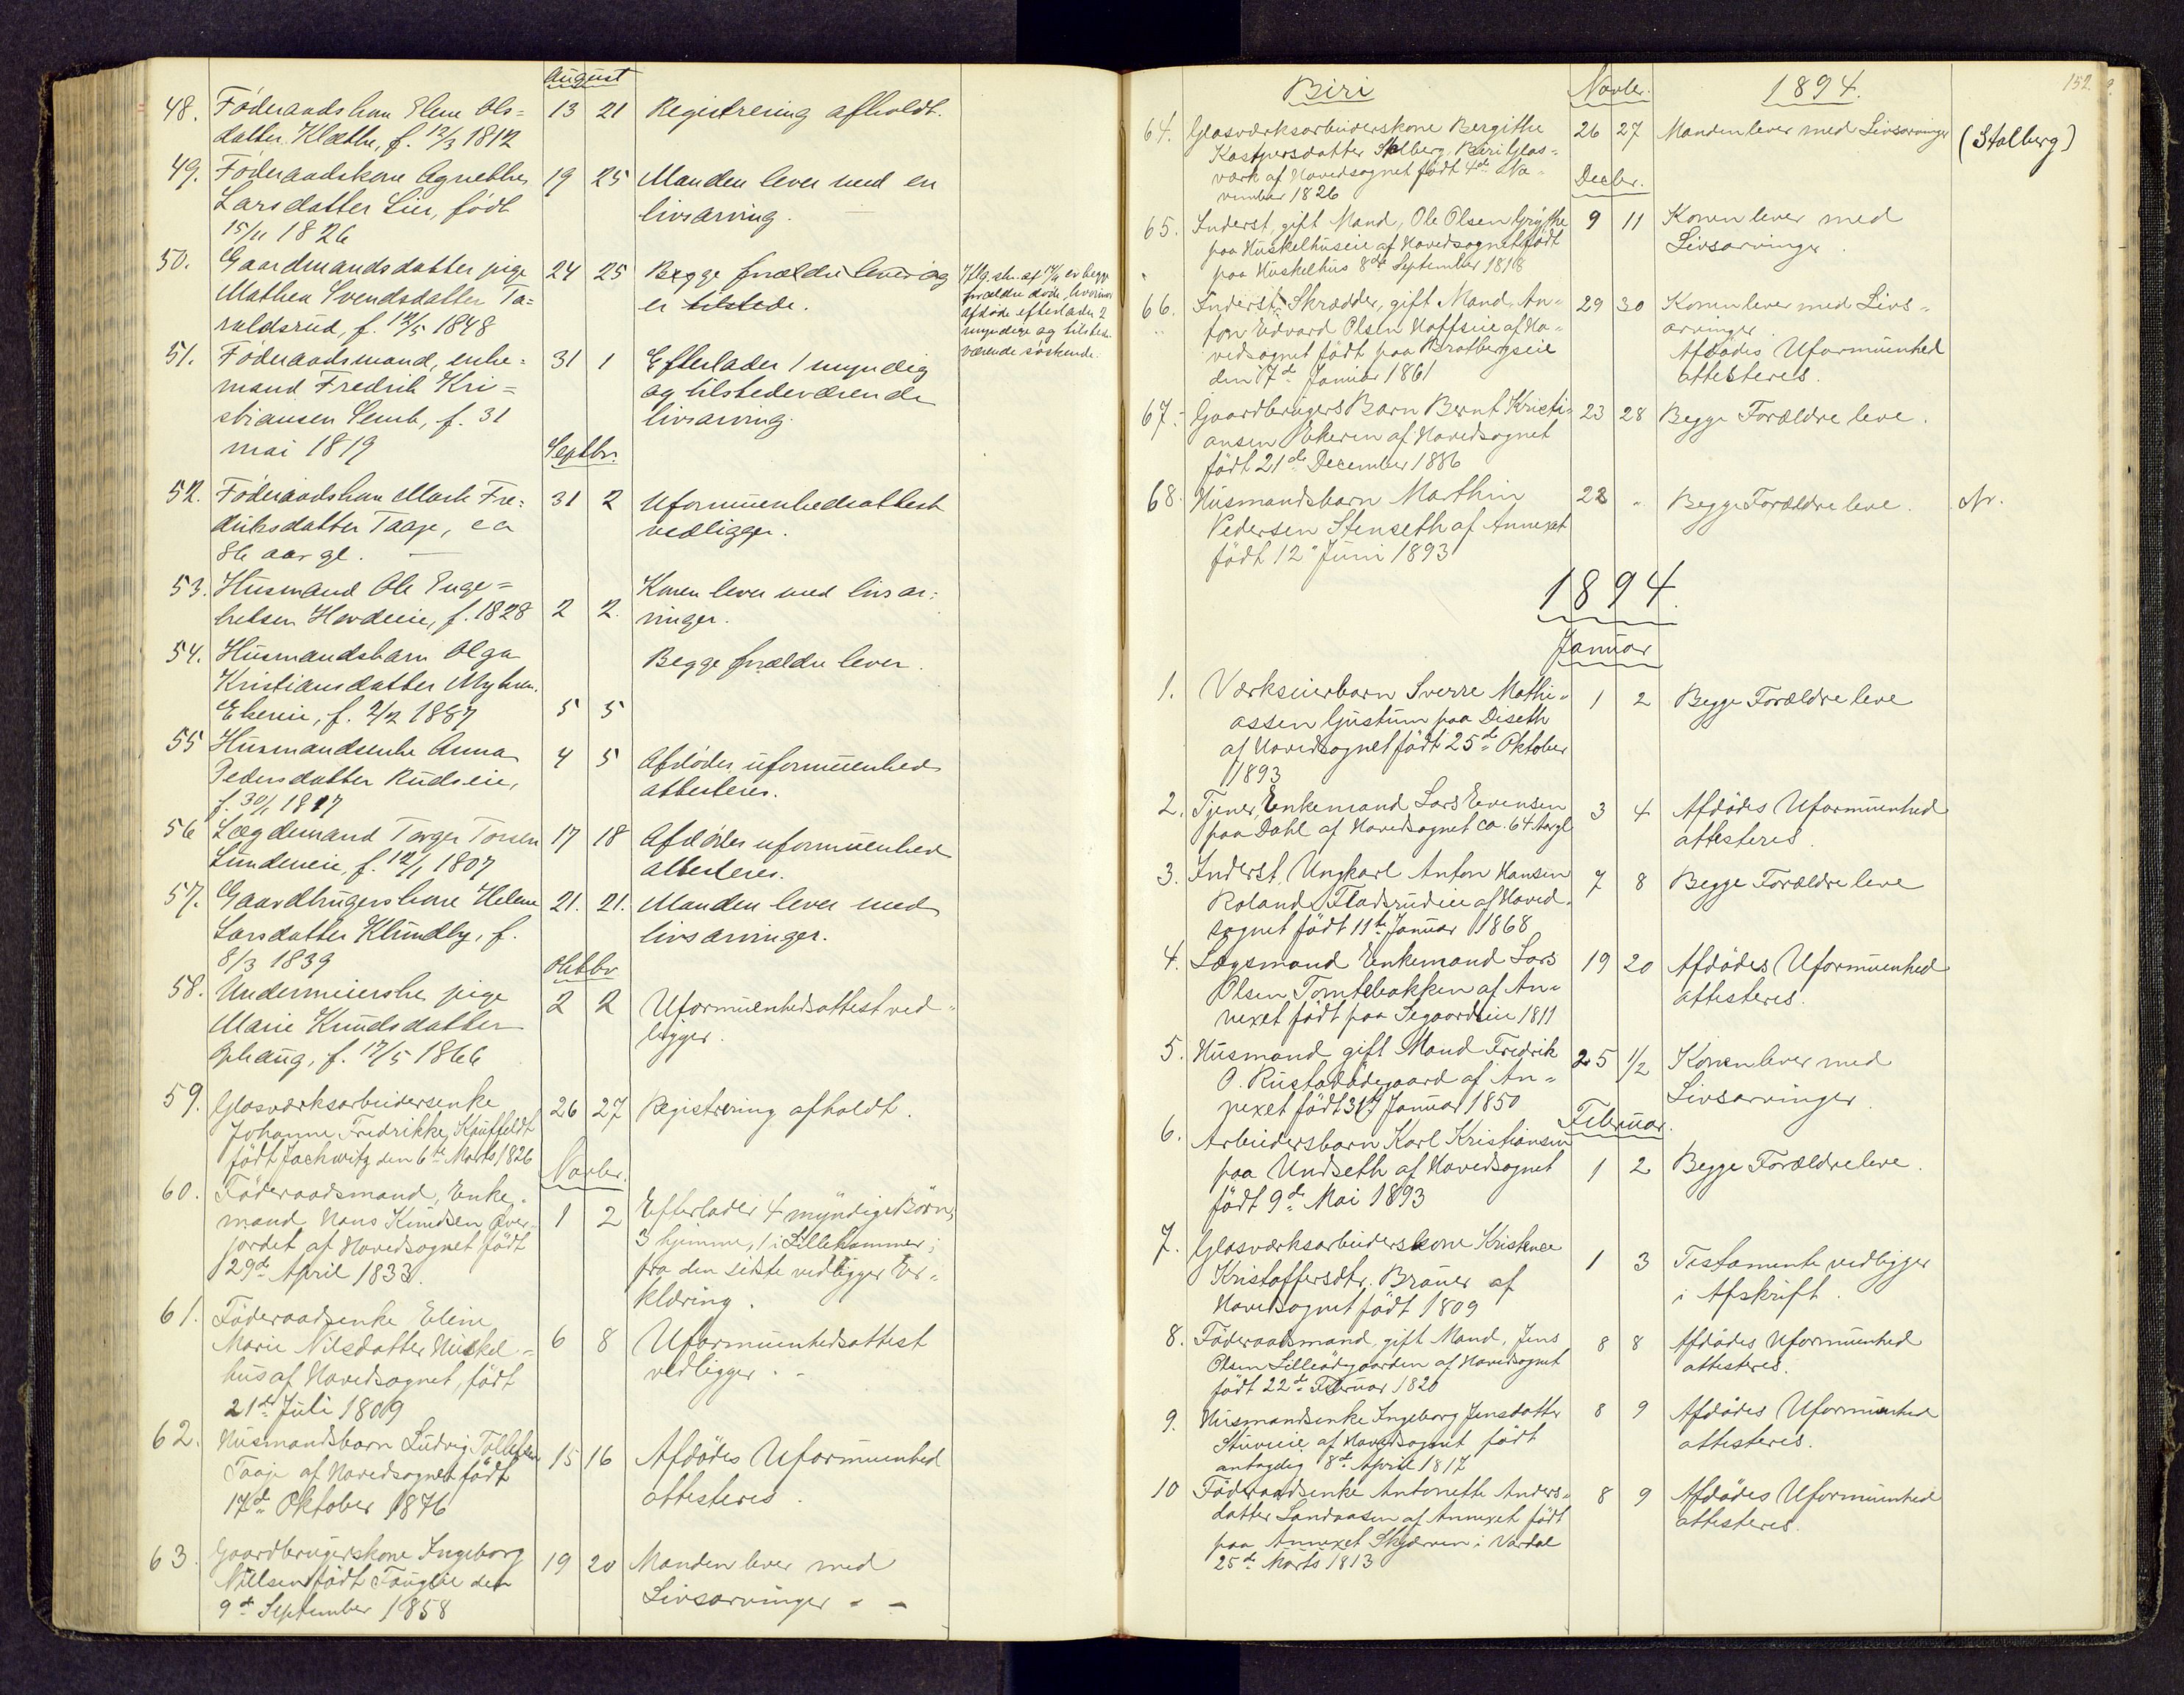 August
48. Föderaadskone Elene Ols=
datter Klæthe, f. 12/3 1812
13 21 Registrering afholdt.
49. Föderaadskone Agnethe
Larsdatter Lier, födt
15/11 1826
19 25 Manden lever med en
livsarving.
50. Gaardmandsdatter pige
Mathea Svendsdatter Ta=
raldsrud, f. 12/5 1848
24 25 Begge forældre lever og
er tilstede.
er begge
forældre döde, hvorimod
afdöde efterlader 2
myndige og tilstede-
værende söskende.
51. Föderaadsmand, enke=
mand Fredrik Kri=
stiansen Semb, f. 31
mai 1819
31 1 Efterlader 1 myndig
og tilstedeværende
livsarving.
Septbr.
52. Föderaadskone Marte Fre=
driksdatter Taaje, ca
86 aar gl.
31 2 Uformuenhedsattest
vedligger.
53. Husmand Ole Enge=
bretsen Hovdeie, f. 1828
2 2. Konen lever med livsar=
vinger.
54. Husmandsbarn Olga
Kristiansdatter Myhren.
Ekereie, f. 2/12 1887
5 5
Begge forældre lever.
55 Husmandsenke Anna
Pedersdatter Rudseie,
f. 30/1 1817
4 5 Afdödes uformuenhed
attesteres.
56 Lægdemand Torger Torsen
Lundeneie, f. 12/1 1807
17 18 Afdödes uformuenhed
attesteres.
57. Gaardbrugerskone Helene
Larsdatter Klundby, f.
8/3 1839
21. 21. Manden lever med
livsarvinger.
Oktbr
58. Undermeierske pige
Marie Knudsdatter
Ophaug, f. 17/5 1866
2 2 Uformuenhedsattest ved=
ligger.
59. Glasværksarbeidersenke
Johanne Fredrikke Kauffeldt
födt Jachwitz den 6te Marts 1826
26 27 Registrering afholdt.
Novbr.
60. Föderaadsmand, Enke=
mand Hans Knudsen Över=
jordet af Hovedsognet födt
29de April 1833.
1 2 Efterlader 4 myndige Börn,
3 hjemme, 1 i Lillehammer;
fra den sidste vedligger Er=
klæring.
61. Föderaadsenke Eline
Marie Nilsdatter Huskel=
hus af Hovedsognet, födt
21de Juli 1809
6 8 Uformuenhedsattest
vedligger.
62. Husmandsbarn Ludvig Tollefsen
Taaje af Hovedsognet födt
17de Oktober 1876
15 16 Afdödes Uformuenhed
attesteres.
63. Gaardbrugerskone Ingeborg
Nilsen födt Fauglie den
9de September 1858
19 20 Manden lever med
Livsarvinger
Biri Novbr. 1894. 152.
64. Glasværksarbeiderskone Bergithe
Kaspersdatter Stalberg Biri Glas=
værk af Hovedsognet födt 4de No=
vember 1826
26 27 Manden lever med Livsarvinger (Stalberg)
Decbr.
65. Inderst, gift Mand, Ole Olsen Grythe
paa Huskelhuseie af Hovedsognet födt
paa Huskelhus 8de September 1818
9 11 Konen lever med
Livsarvinger.
66. Inderst, Skrædder, gift Mand An=
ton Edvard Olsen Hoffseie af Ho=
vedsognet födt paa Bratbergseie
den 17de Januar 1861
29 30 Konen lever med Livs=
arvinger
Afdödes Uformuenhed
attesteres.
67. Gaardbrugers Barn Bernt Kristi=
ansen Ekeren af Hovedsognet
födt 21de December 1886
23 28 Begge Forældre leve.
68. Husmandsbarn Marthin
Pedersen Stenseth af Annexet
födt 12te Juni 1893
28 " Begge Forældre leve. Nr.
1894.
Januar
1. Værkseierbarn Sverre Mathi=
assen Gustum paa Diseth
af Hovedsognet födt 25de Oktober
1893
1 2 Begge Forældre leve
2. Tjener, Enkemand Lars Evensen
paa Dahl af Hovedsognet ca. 64 Aar gl
3 4 Afdödes Uformuenhed
attesteres.
3. Inderst, Ungkarl Anton Hansen
Roland Fladsrudeie af Hoved=
sognet födt 11te Januar 1868
7 8 Begge Forældre leve
4. Lægsmand Enkemand Lars
Olsen Tomtebakken af An=
nexet födt paa Segaardseie 1811
19 20 Afdödes Uformuenhed
attesteres.
5. Husmand gift Mand Fredrik
O. Rustadödegaard af An=
nexet födt 31te Januar 1850
25 1/2 Konen lever med
Livsarvinger
Februar.
6. Arbeidersbarn Karl Kristiansen
paa Undseth af Hovedsognet
födt 9de Mai 1893
1 2 Begge Forældre leve.
7. Glasværksarbeiderskone Kristence
Kristoffersdtr. Brauer af
Hovedsognet födt 1809
1 3 Testamente vedligger
i Afskrift.
8. Föderaadsmand gift Mand, Jens
Olsen Lilleödegaarden af Hovedsognet
födt 22de Februar 1820
8 8 Afdödes Uformuenhed
attesteres.
9. Husmandsenke Ingeborg Jensdatter
Stuveeie af Hovedsognet födt
antagelig 8de April 1817
8 9 Afdödes Uformuenhed
attesteres.
10 Föderaadsenke Antonette Anders=
datter Sandaasen af Annexet födt
paa Annexet Skjærven i Vardal
25de Marts 1813
8 9 Afdödes Uformuenhed
attesteres.